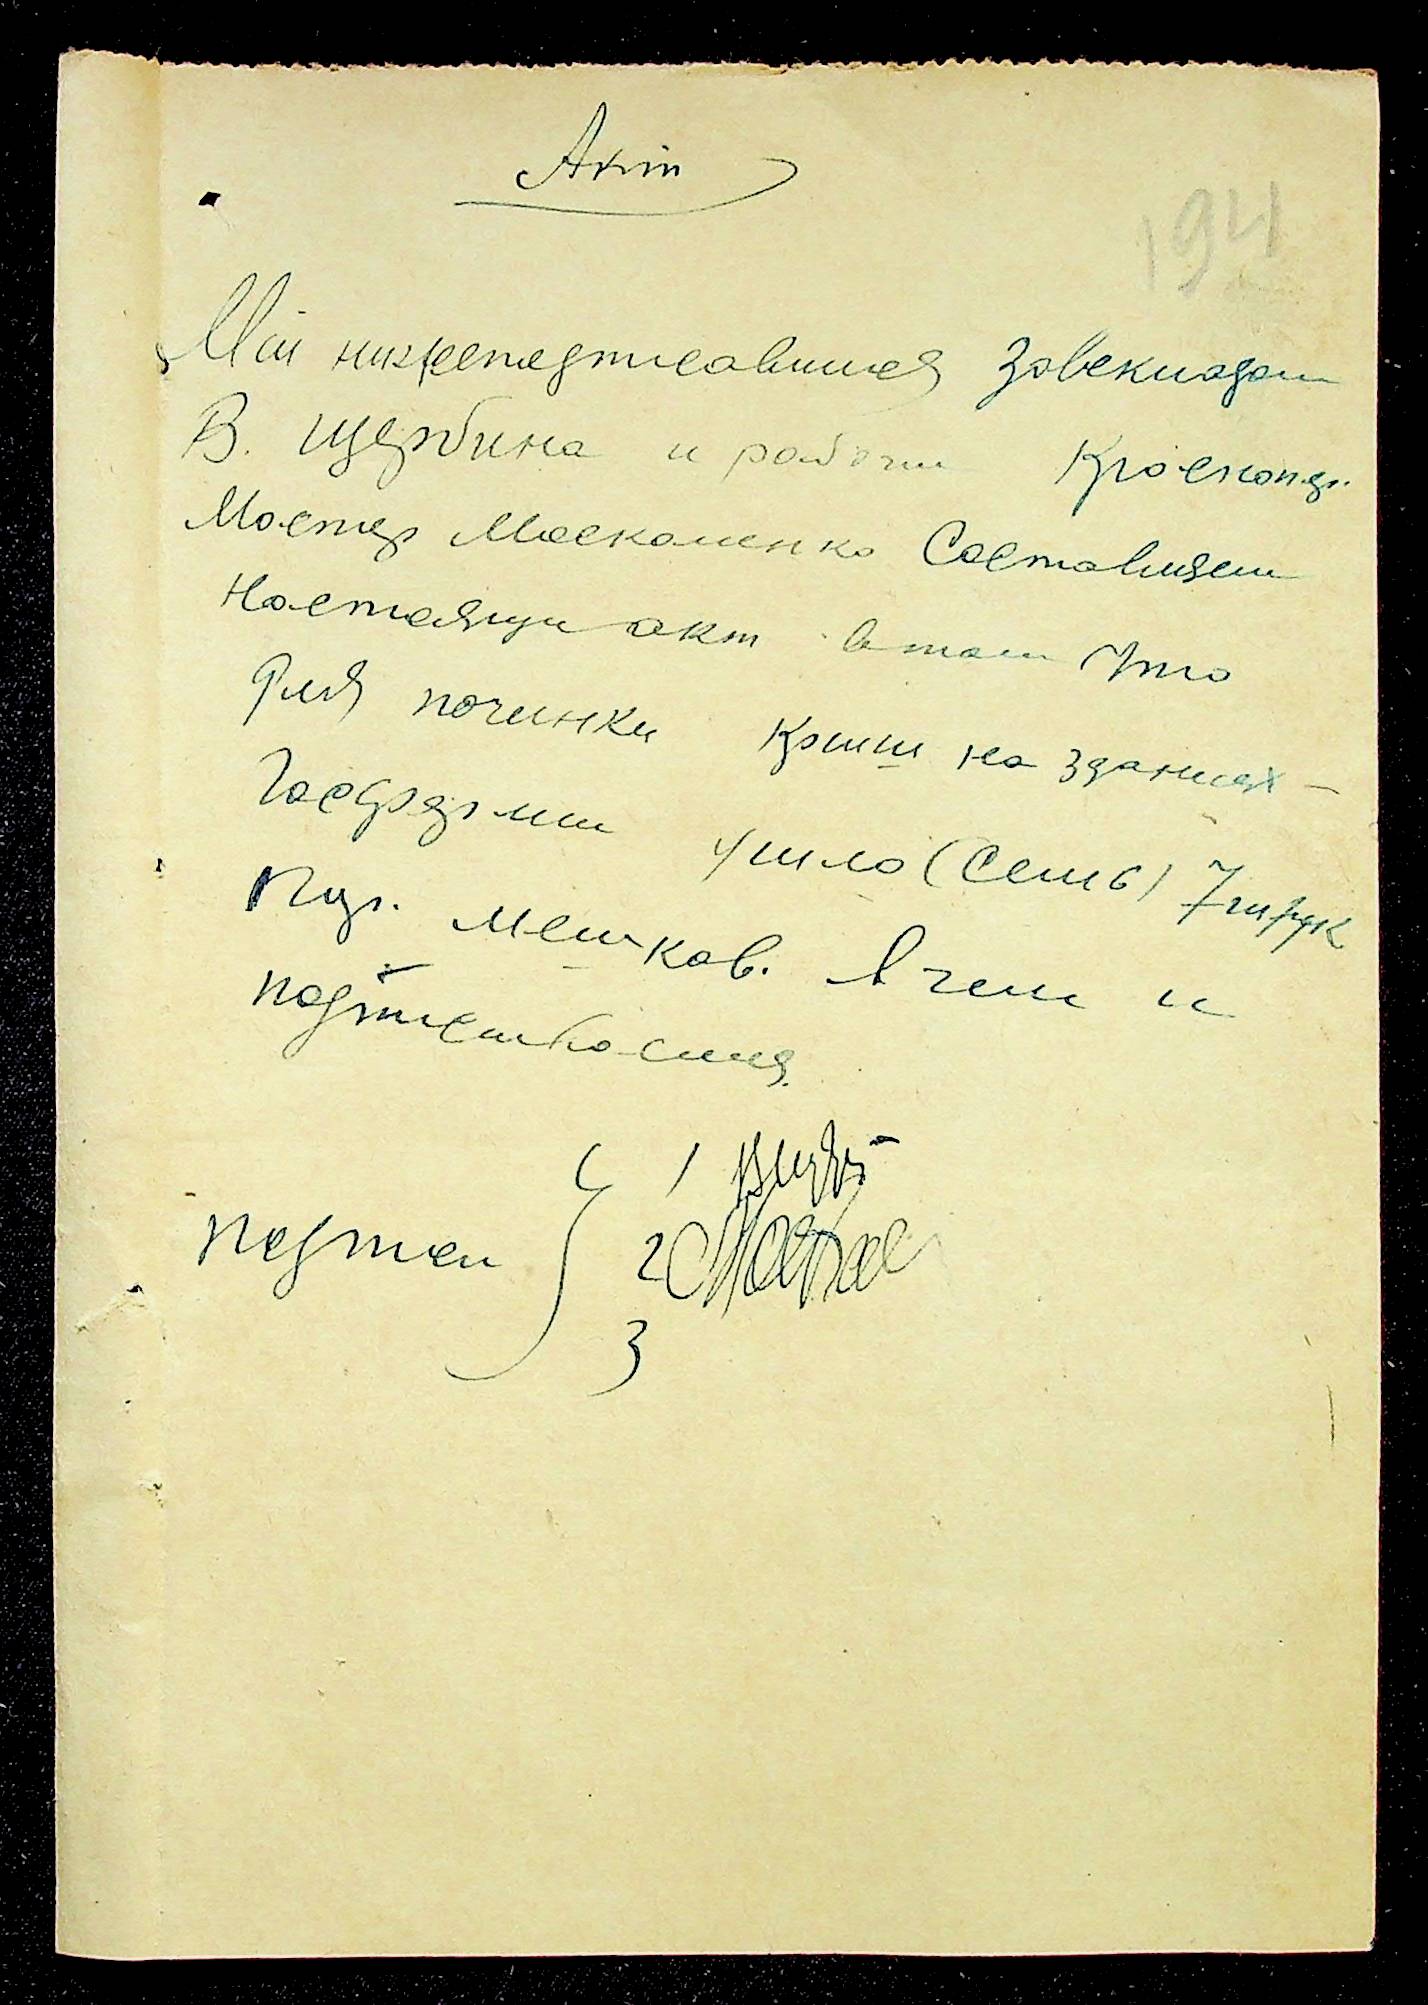 Акт
194
Мы нижеподписавшися Завскладом
В. Щербина и рабочи Красногр.
Мостер Москаленко Составлием
Настоящи акт в том Что
Для починки Крыш на зданиях –
Госферми ушло (семь) 7 штук
мешков. В чем и
подписываемся.
подписи { 1
2
3